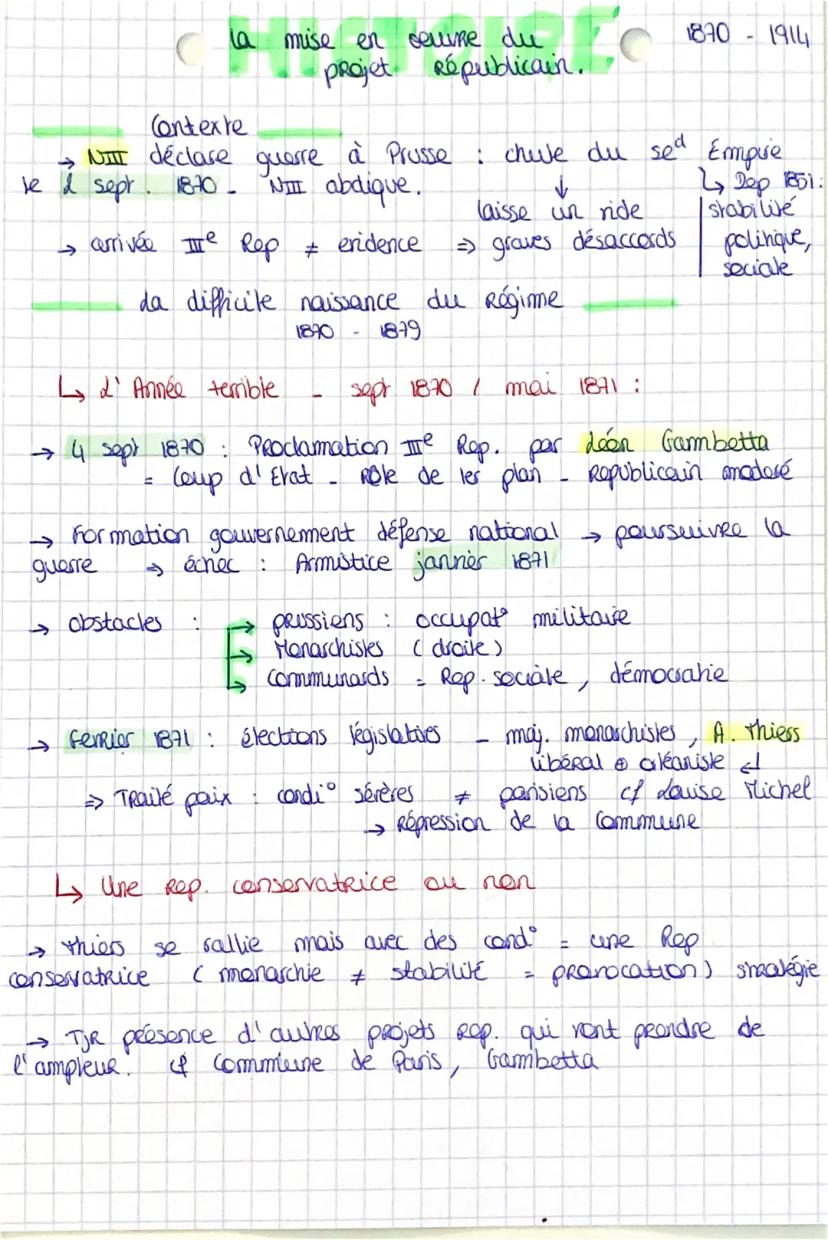 HISTOIRE
la mise en oeuvre du 1870 - 1914
projet républicain.
Contexte
→ NIII déclare guerre à Prusse : chute du se^d Empire
le 2 sept. 1870 - NIII abdique. ↓ ↳ Dep 1851 :
laisse un vide stabilité
→ arrivée III^e Rep ≠ evidence ⇒ graves désaccords politique,
sociale
La difficile naissance du Régime
1870 - 1879
↳ L'Année terrible - sept 1870 / mai 1871 :
→ 4 sept 1870 : Proclamation III^e Rep. par Léon Gambetta
= Coup d'Etat - Rôle de 1er plan - Republicain modéré
→ Formation gouvernement défense national → poursuivre la
guerre → échec : Armistice janvier 1871
→ obstacles : → prussiens : occupat° militaire
→ Monarchistes (droite)
↳ Communards = Rep. sociale, démocratie
→ fevrier 1871 : élections législatives - maj. monarchistes, A. Thiers
libéral ⊕ orléaniste ↲
⇒ Traité paix : condi° sévères ≠ parisiens cf Louise Michel
→ Répression de la Commune
↳ Une Rep. conservatrice ou non
→ Thiers se rallie mais avec des cond° = une Rep
conservatrice (monarchie ≠ stabilité = provocation) stratégie
→ TJR présence d'autres projets rep. qui vont prendre de
l'ampleur. cf Commune de Paris, Gambetta